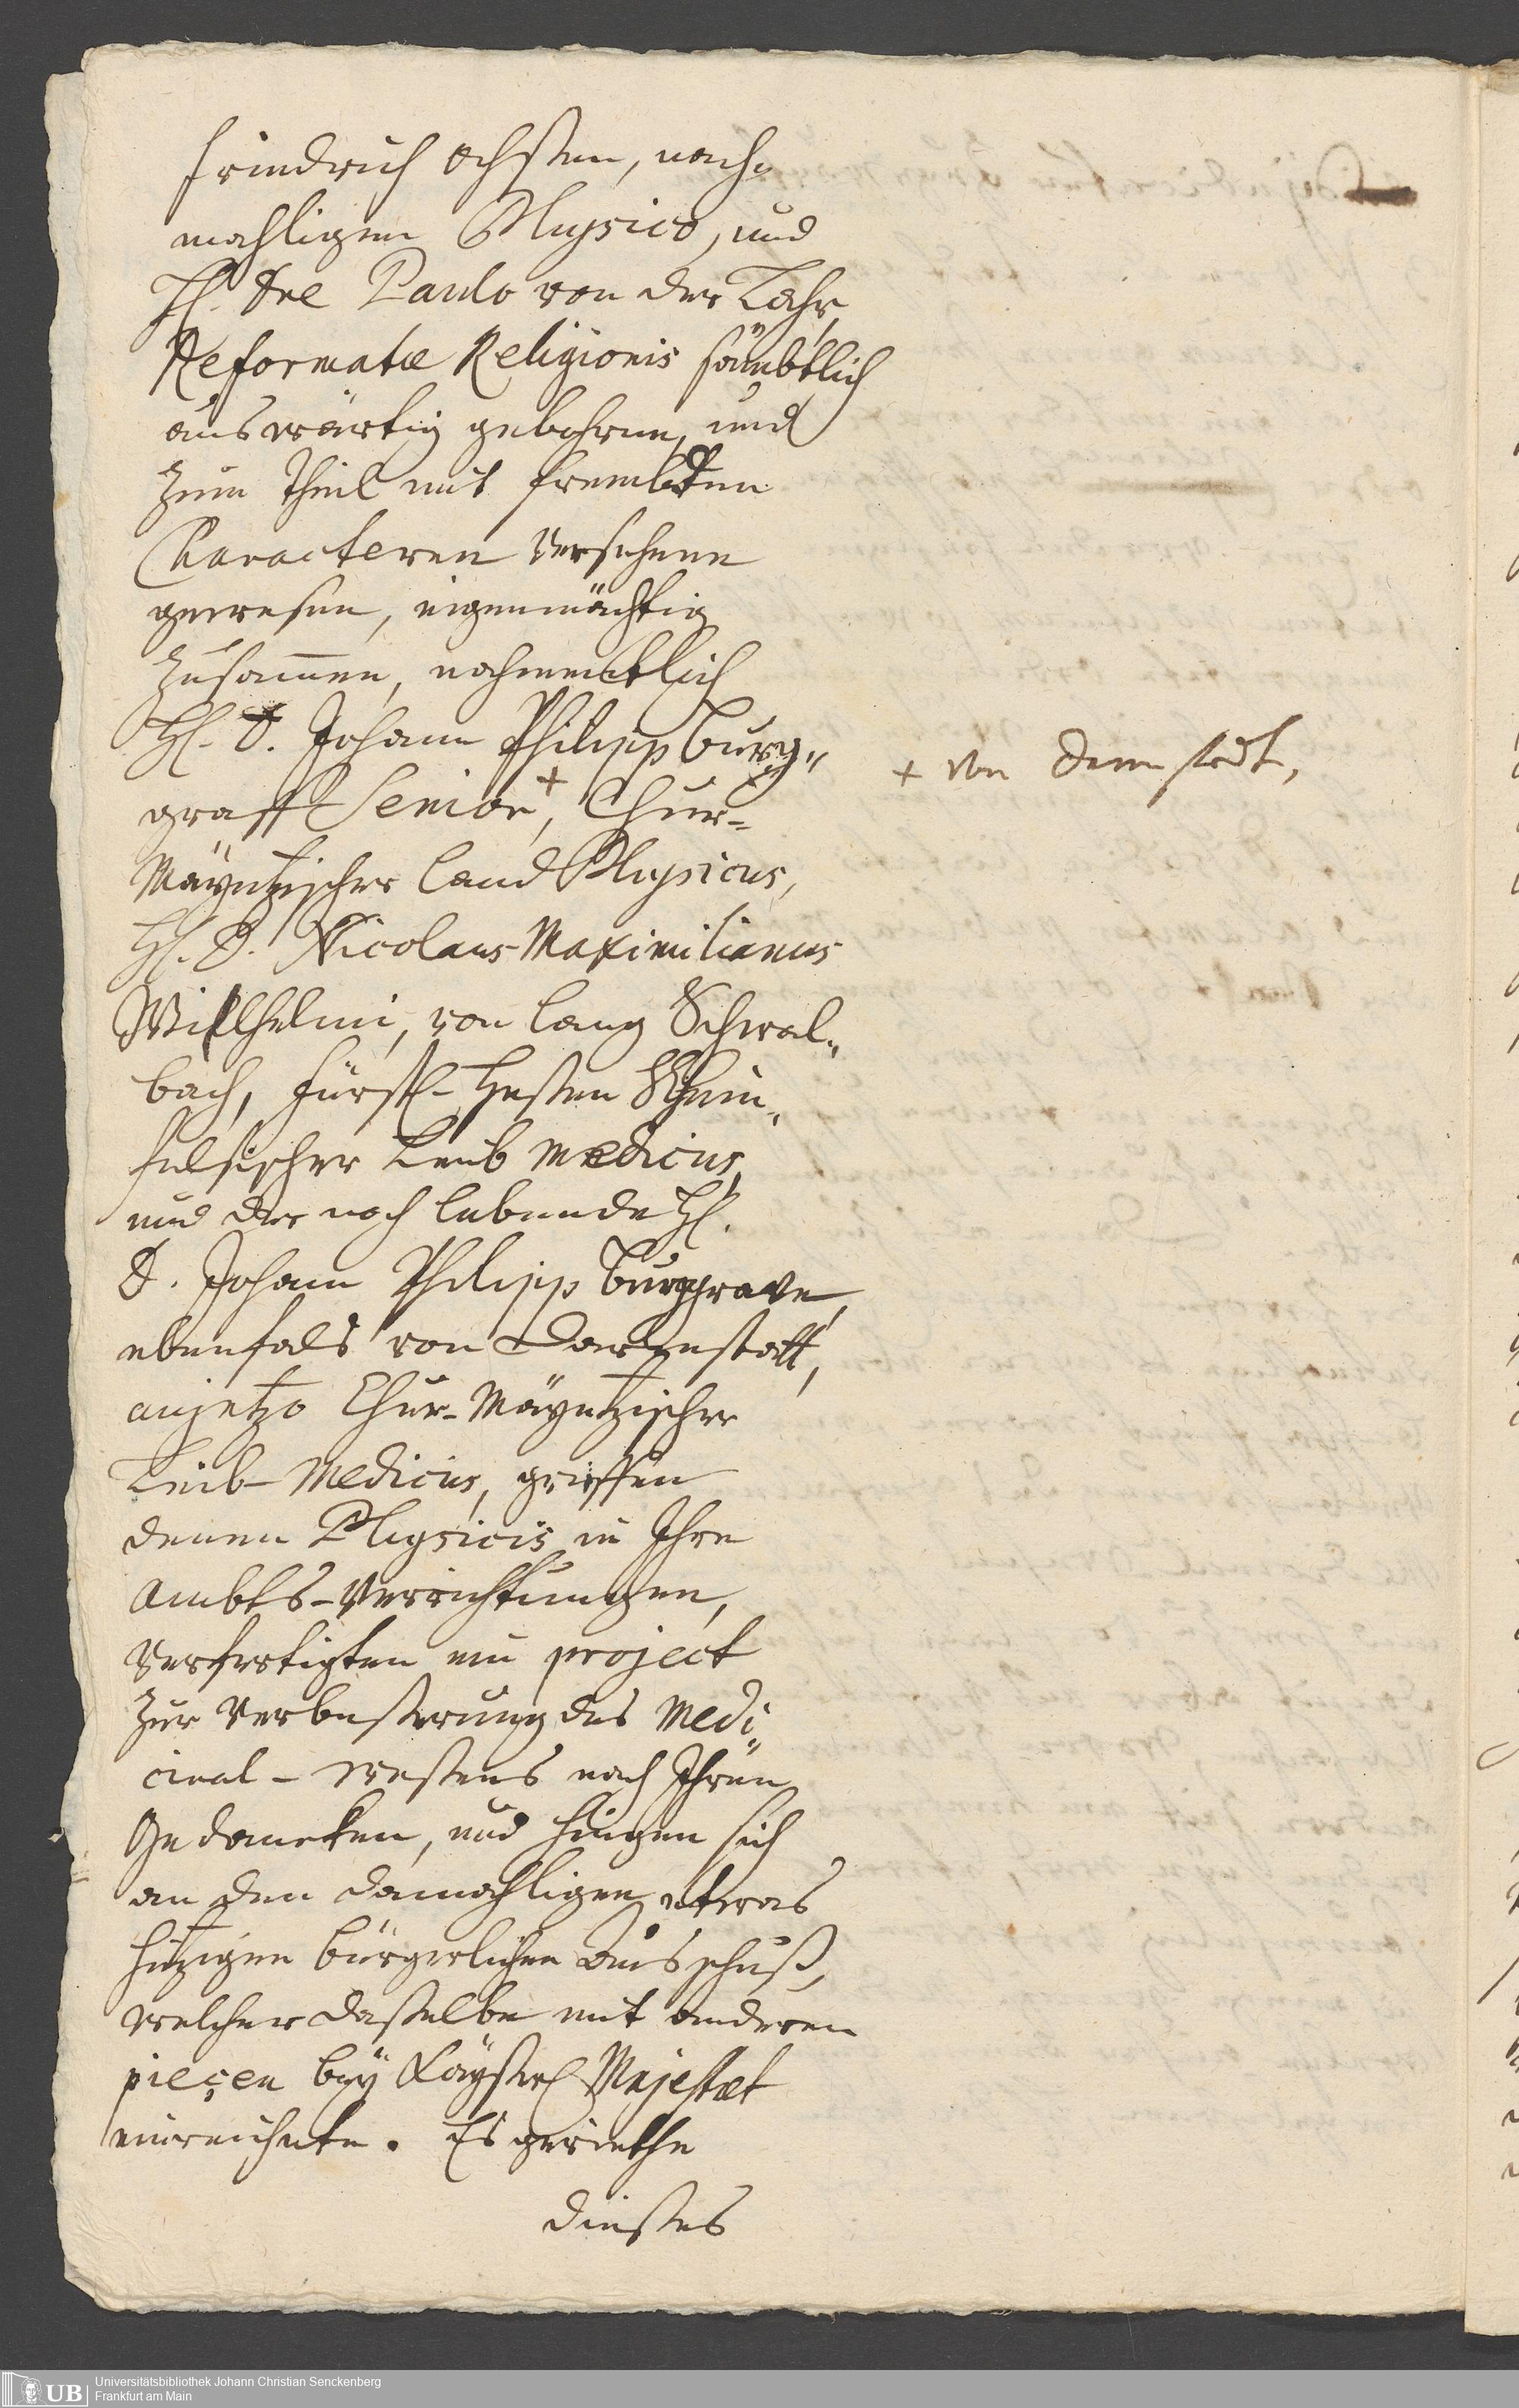 Friedrich Ochsen, nach„
mahligem Physico, und
H. Dre Paulo von der Lahr,
Reformatæ Religionis sämbtlich
auswärtig gebohrne, und
zum Theil mit frembden
Characteren versehene
gewesen, eigenmächtig
zusammen, nahmentlich
H. D. Johann Philipp Burg„
graff Senior +, Chur-
Mäyntzischer Land Physicus,
+ von Darmstadt,
H. D. Nicolaus Maximilianus
Wilhelmi, von Lang Schwal„
bach, Fürstl. Hessen Rhein„
felsischer Leib Medicus,
und der noch lebende H.
D. Johann Philipp Burggrave,
ebenfals von Darmstatt,
anjetzo Chur-Mäyntzischer
Leib-Medicus, grieffen
denen Physicis in Ihre
Ambts-Verrichtungen,
verfertigten ein project
zur Verbesserung des Medi„
cinal-Wesens nach Ihren
Gedancken, und hingen sich
an den damahligen etwas
hitzigen bürgerlichen Ausschuß,
welcher dasselbe mit anderen
pieçen bey Kayserl. Majestæt
einreichete. Es geriethe
dieses
Universitätsbibliothek Johann Christian Senckenberg
Frankfurt am Main
UB